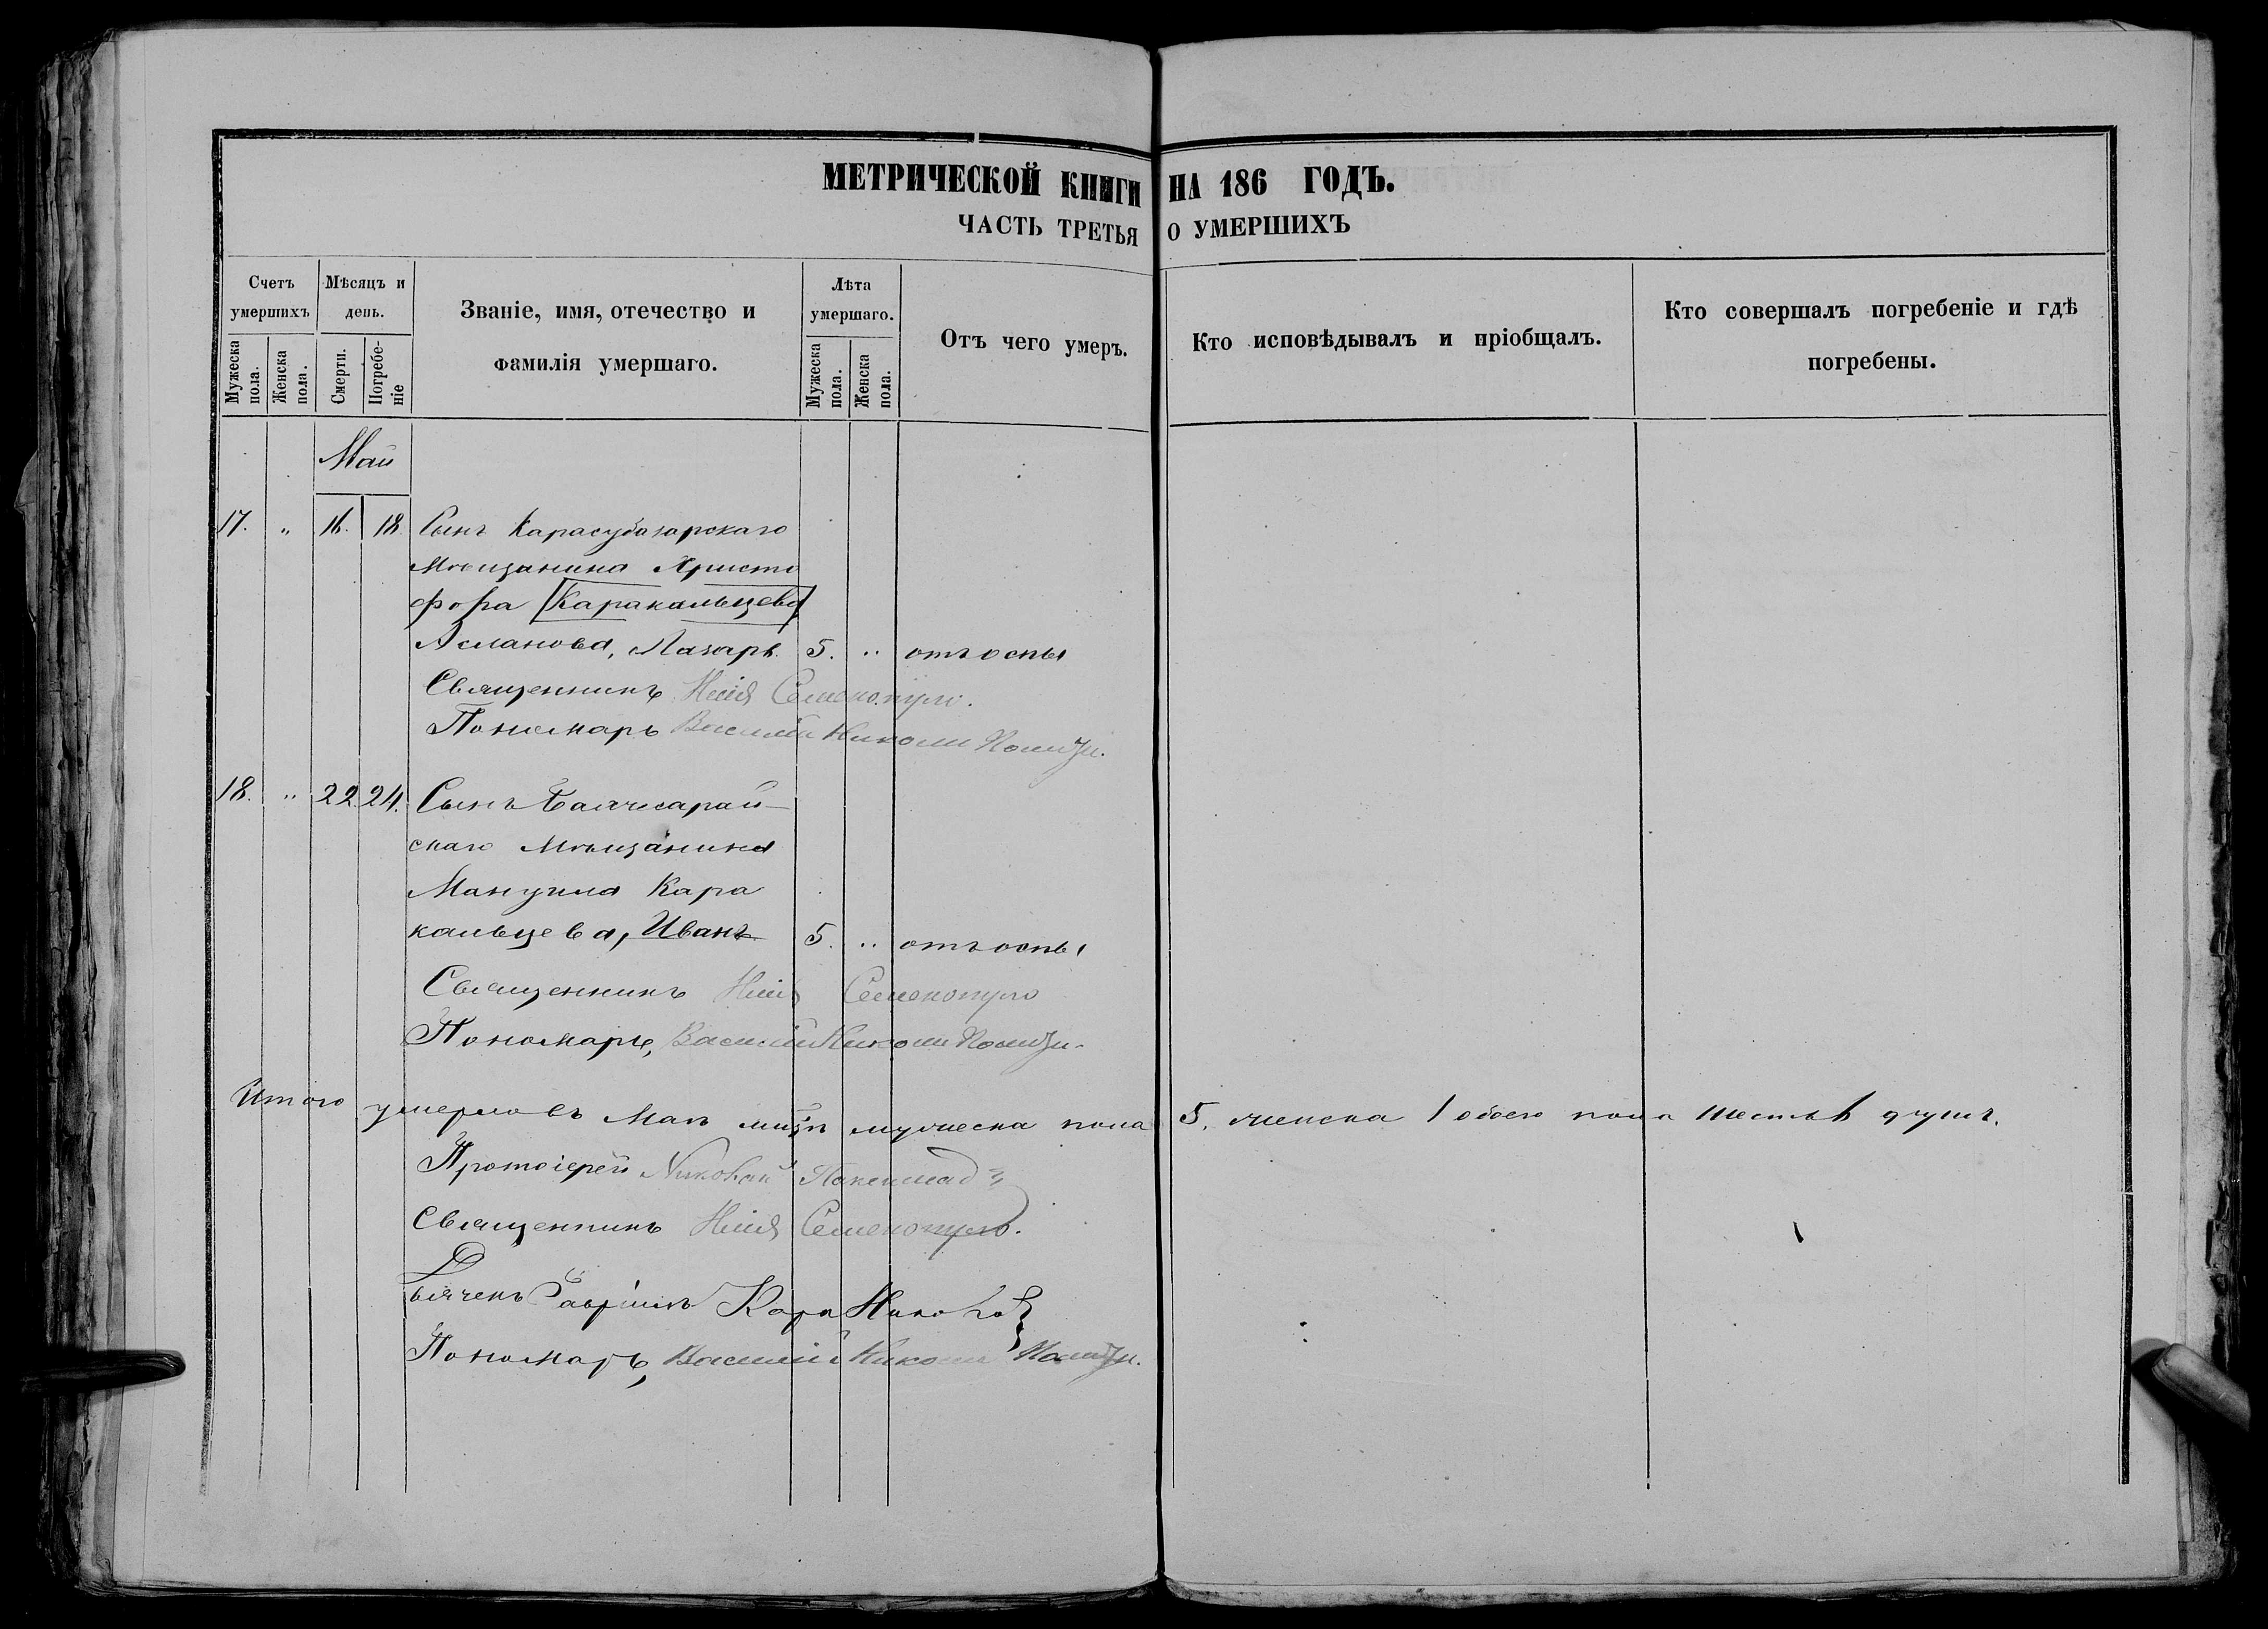 МЕТРИЧЕСКОЙ КНИГИ НА 186 ГОДЪ.
ЧАСТЬ ТРЕТЬЯ О УМЕРШИХЪ
Счетъ умершихъ
Мужеска пола.
Женска пола.
Мѣсяцъ и день.
Смерти.
Погребе-ніе
Званіе, имя, отечество и
фамилія умершаго.
Лѣта умершаго.
Мужеска пола.
Женска пола.
Отъ чего умеръ.
Кто исповѣдывалъ и пріобщалъ.
Кто совершалъ погребеніе и гдѣ
погребены.
Май
17. „ 16. 18 Сынъ Карасубазарскаго
Мѣщанина Христо
фора Каракальцева
Асланова, Лазарь. 5. „ отъ оспы
Священникъ Илія
Пономарь Василій Николи
18. „ 22. 24. Сынъ Бахчесарай-
скаго Мѣщанина
Мануила Кара
кальцева, Иванъ 5. „ отъ оспы
Священникъ Илія
Пономарь, Василій Николи
Итого умерло въ Маѣ мцѣ мужеска пола 5. женска 1 обоего пола шесть душъ.
Протоіерей Николай
Священникъ Илія
Дьячекъ Гавріилъ Кара
Пономарь, Василій Николи